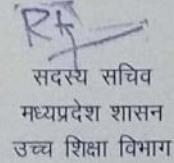 सदस्य सचिव
मध्यप्रदेश शासन
उच्च शिक्षा विभाग